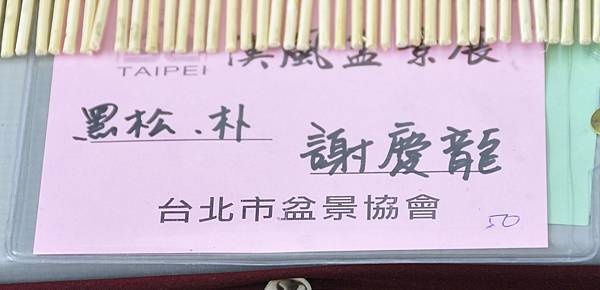 TAIPEI 漢風盆景展
黑松.朴 謝慶龍
台北市盆景協會 50